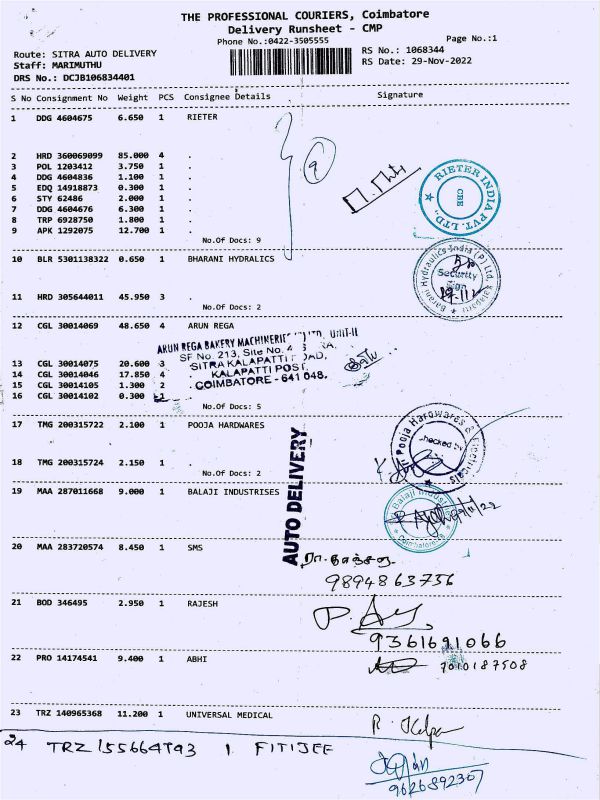 THE PROFESSIONAL COURIERS, Coimbatore
Delivery Runsheet - CMP
Phone No.:0422-3505555
Page No.:1
Route: SITRA AUTO DELIVERY
RS No.: 1068344
Staff: MARIMUTHU
RS Date: 29-Nov-2022
DRS No.: DCJB106834401
S No Consignment No Weight PCS Consignee Details Signature
1 DDG 4604675 6.650 1 RIETER
2 HRD 360069099 85.000 4 .
3 POL 1203412 3.750 1 .
4 DDG 4604836 1.100 1 .
5 EDQ 14918873 0.300 1 .
6 STY 62486 2.000 1 .
7 DDG 4604676 6.300 1 .
8 TRP 6928750 1.800 1 .
9 APK 1292075 12.700 1 .
No.Of Docs: 9
9
RIETER INDIA PVT. LTD.,
CBE
10 BLR 5301138322 0.650 1 BHARANI HYDRALICS
11 HRD 305644011 45.950 3 .
No.Of Docs: 2
Barani Hydraulics India (P) Ltd,
Security
Sign
12 CGL 30014069 48.650 4 ARUN REGA
ARUN REGA BAKERY MACHINERIES LTD, UNIT-II
SF No. 213, Site No. 4
SITRA KALAPATTI ROAD,
KALAPATTI POST,
COIMBATORE - 641 048.
13 CGL 30014075 20.600 3
14 CGL 30014046 17.850 4
15 CGL 30014105 1.300 2
16 CGL 30014102 0.300 1
No.Of Docs: 5
17 TMG 200315722 2.100 1 POOJA HARDWARES
18 TMG 200315724 2.150 1 .
No.Of Docs: 2
Pooja Hardwares & Electricals
checked by
AUTO DELIVERY
19 MAA 287011668 9.000 1 BALAJI INDUSTRISES
Balaji Indust
Coimbatore
20 MAA 283720574 8.450 1 SMS
9894863756
21 BOD 346495 2.950 1 RAJESH
9361691066
22 PRO 14174541 9.400 1 ABHI
7010187508
23 TRZ 140965368 11.200 1 UNIVERSAL MEDICAL
24 TRZ 155664793 1 FITIJEE
9626892307